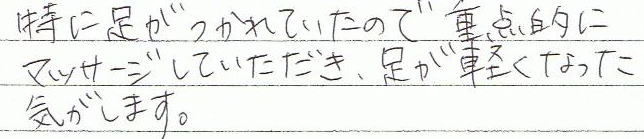 特に足がつかれていたので重点的に
マッサージしていただき、足が軽くなった
気がします。